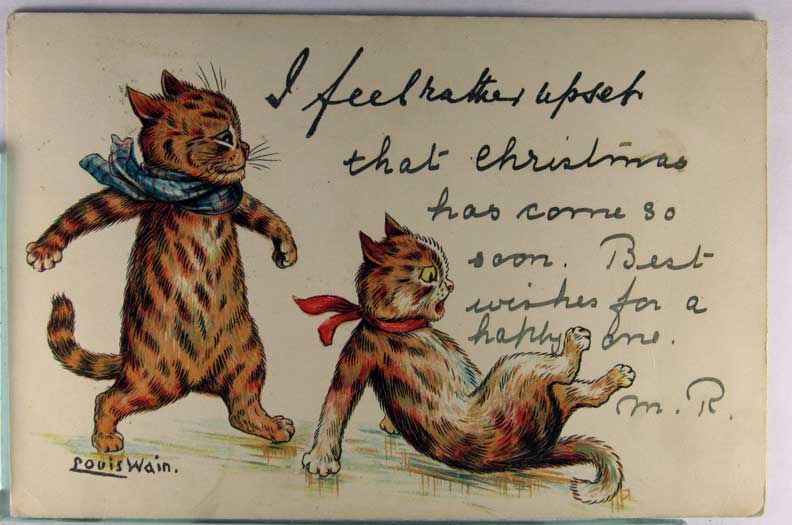 I feel rather upset
that Christmas
has come so
soon. Best
wishes for a
happy one.
M. R.
Louis Wain.